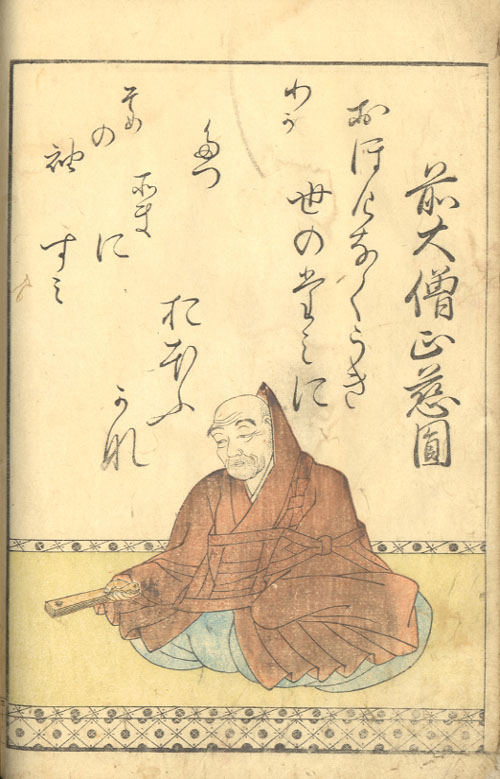 前大僧正慈圓
おほけなくうき
世のたみに
おほふ
かな
わか
たつ
そまに
すみ
そめの袖